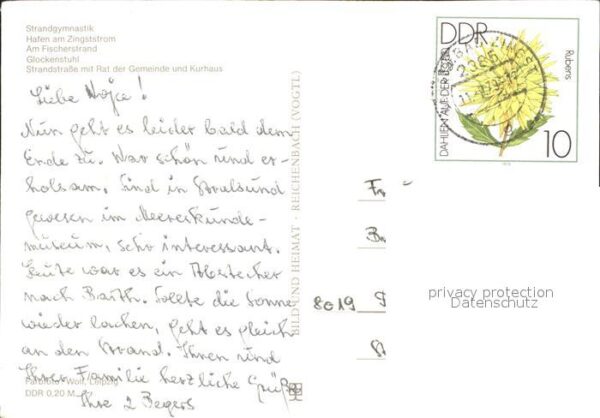 Strandgymnastik
Hafen am Zingststrom
Am Fischerstrand
Glockenstuhl
Strandstraße mit Rat der Gemeinde und Kurhaus
Liebe
Nun geht es leider bald dem
Ende zu. War schön und er-
holsam. Sind in Stralsund
gewesen im Meereskunde-
museum, sehr interessant.
Heute war es ein Abstecher
nach Barth. Sollte die Sonne
wieder lachen, geht es gleich
an den Strand. Ihnen und
Ihrer Familie herzliche Grüße
Ihre 2 Begers
Farbfoto: Wolf, Leipzig
DDR 0,20 M
BILD UND HEIMAT · REICHENBACH (VOGTL)
DDR
DAHLIEN AUS DER
Rubens
10
Fr
8019
privacy protection
Datenschutz